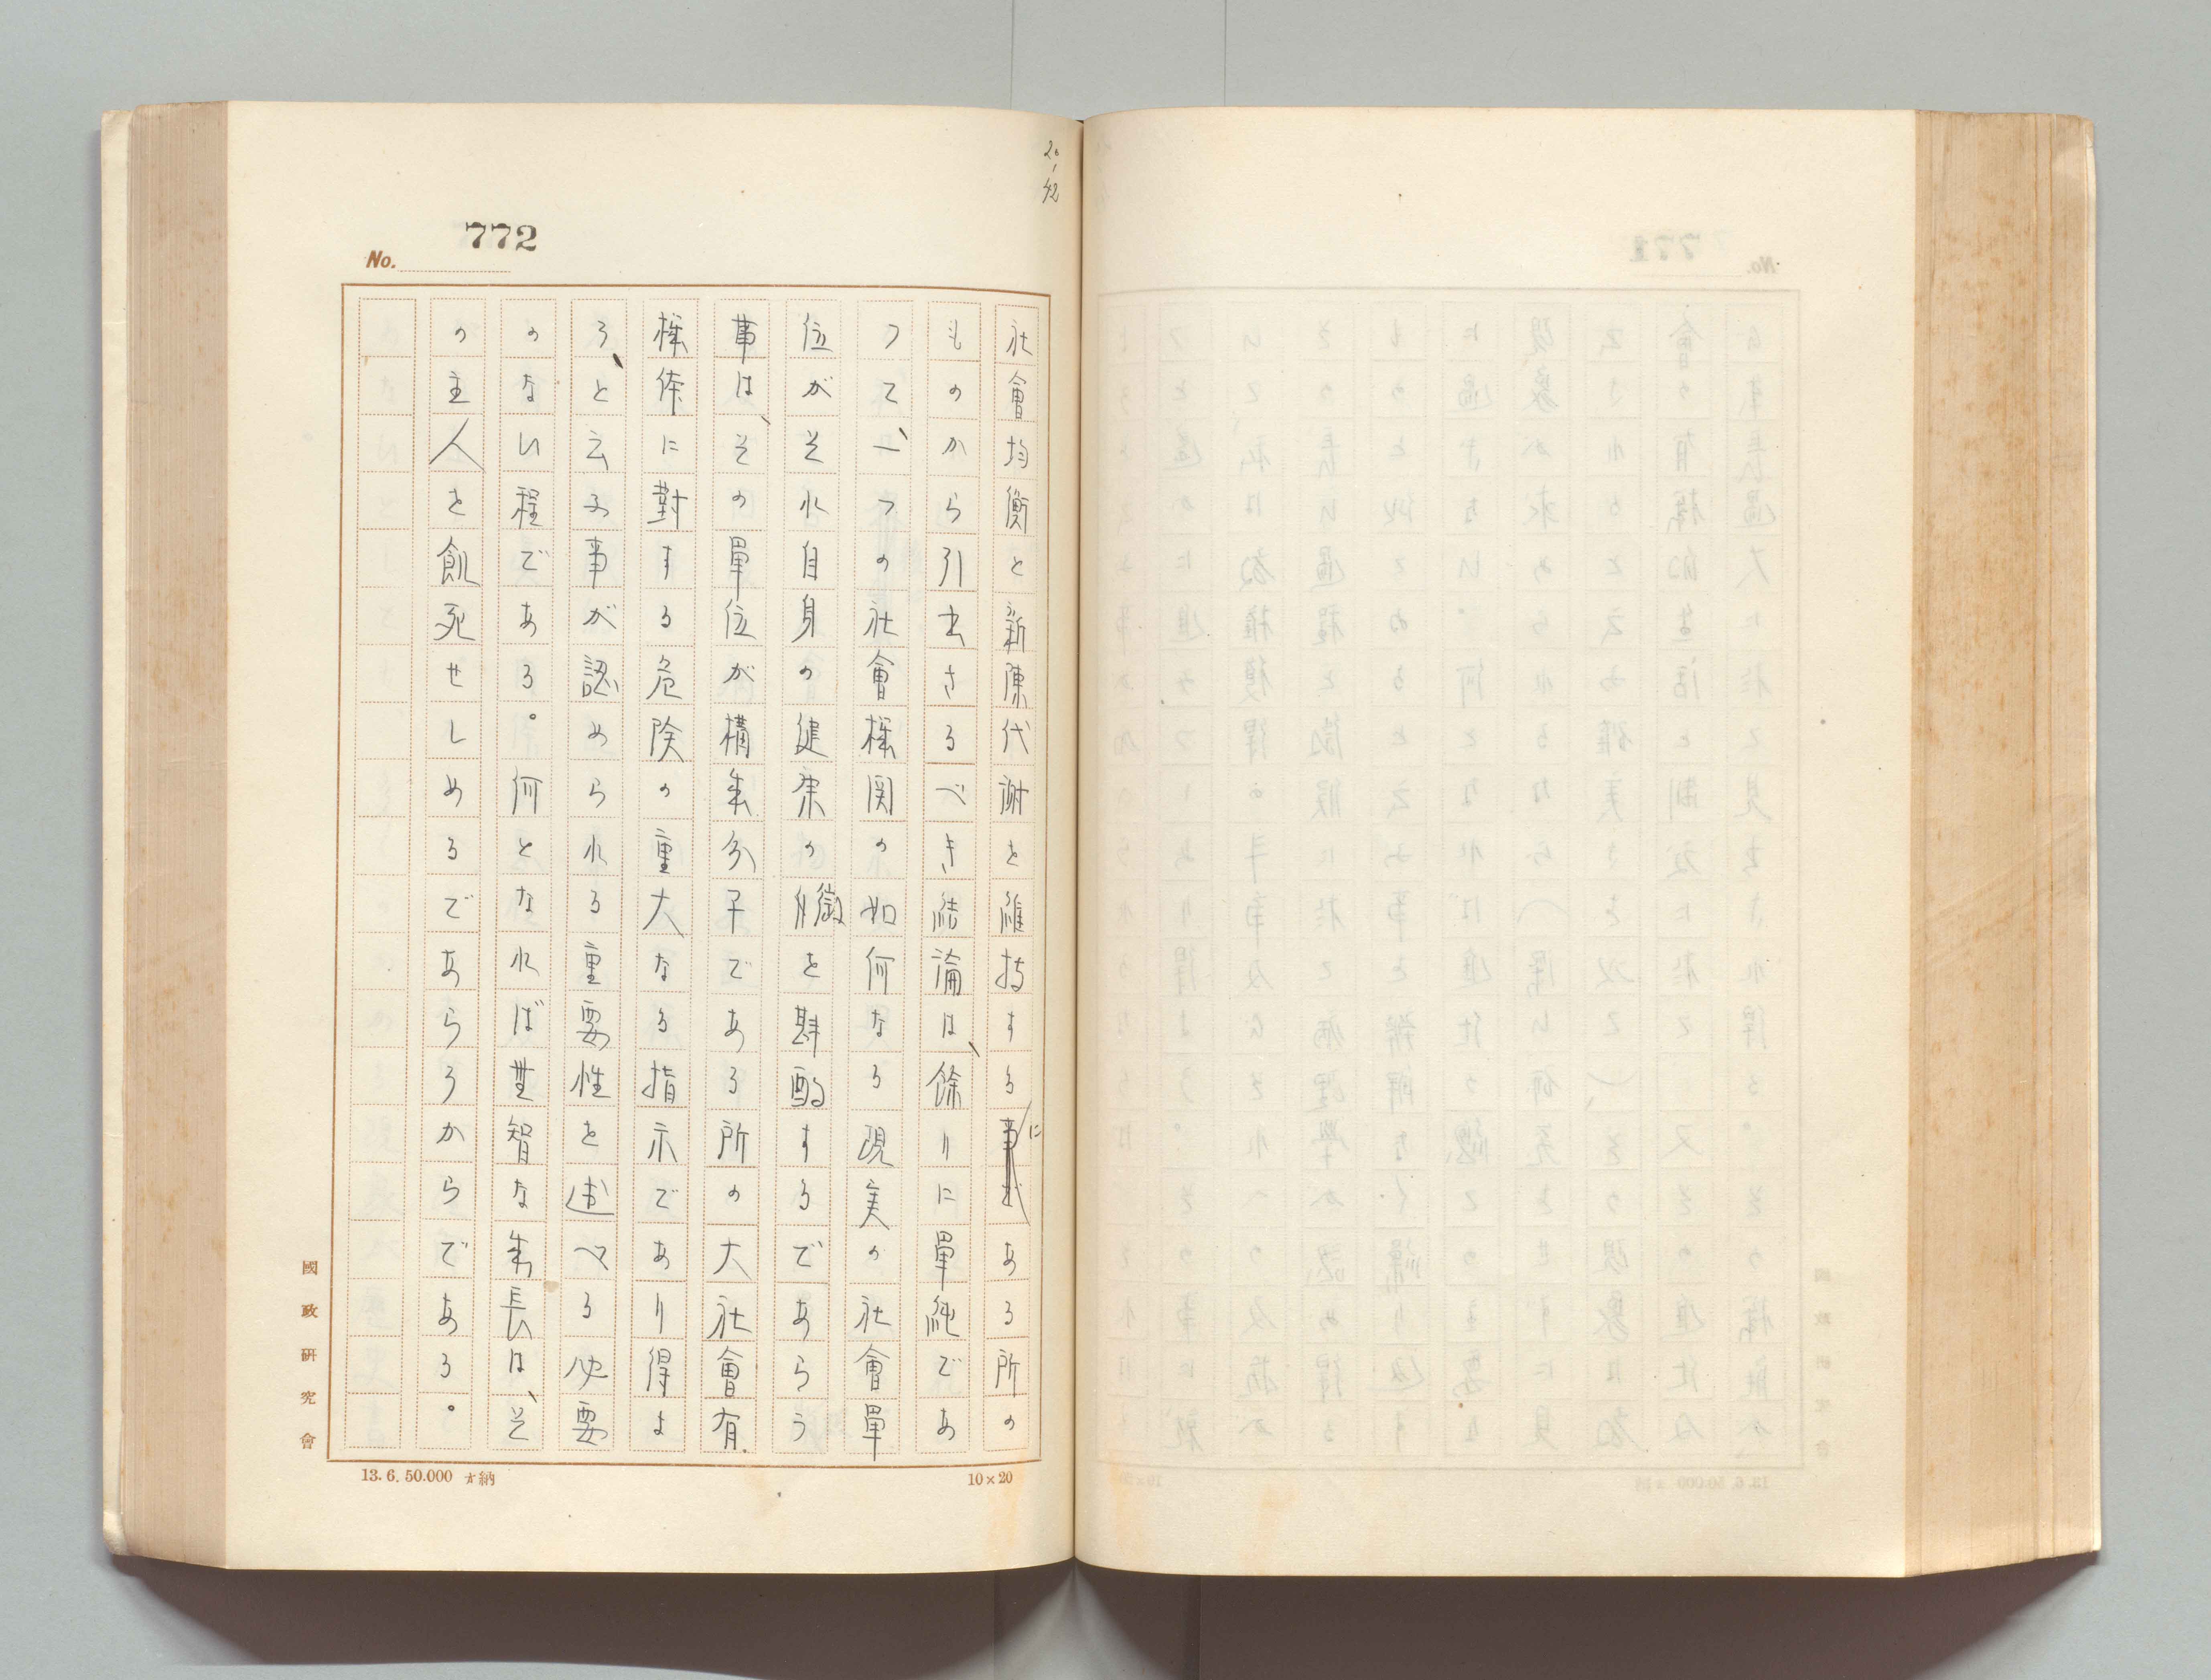 20
42
772
No.
社會均衡と新陳代謝を維持するにある所の
ものから引去さるべき結論は、餘りに單純であ
つて、一つの社會機関の如何なる現実の社會單
位がそれ自身の健康の徴を斟酌するであらう
事は、その單位が構集分子である所の大社會有
機体に對する危険の重大なる指示であり得よ
う、と云ふ事が認められる重要性を述べる必要
のない程である。何となれば無智な集長は、そ
の主人を飢死せしめるであらうからである。
國政研究會
13.6.50.000 納
10×20